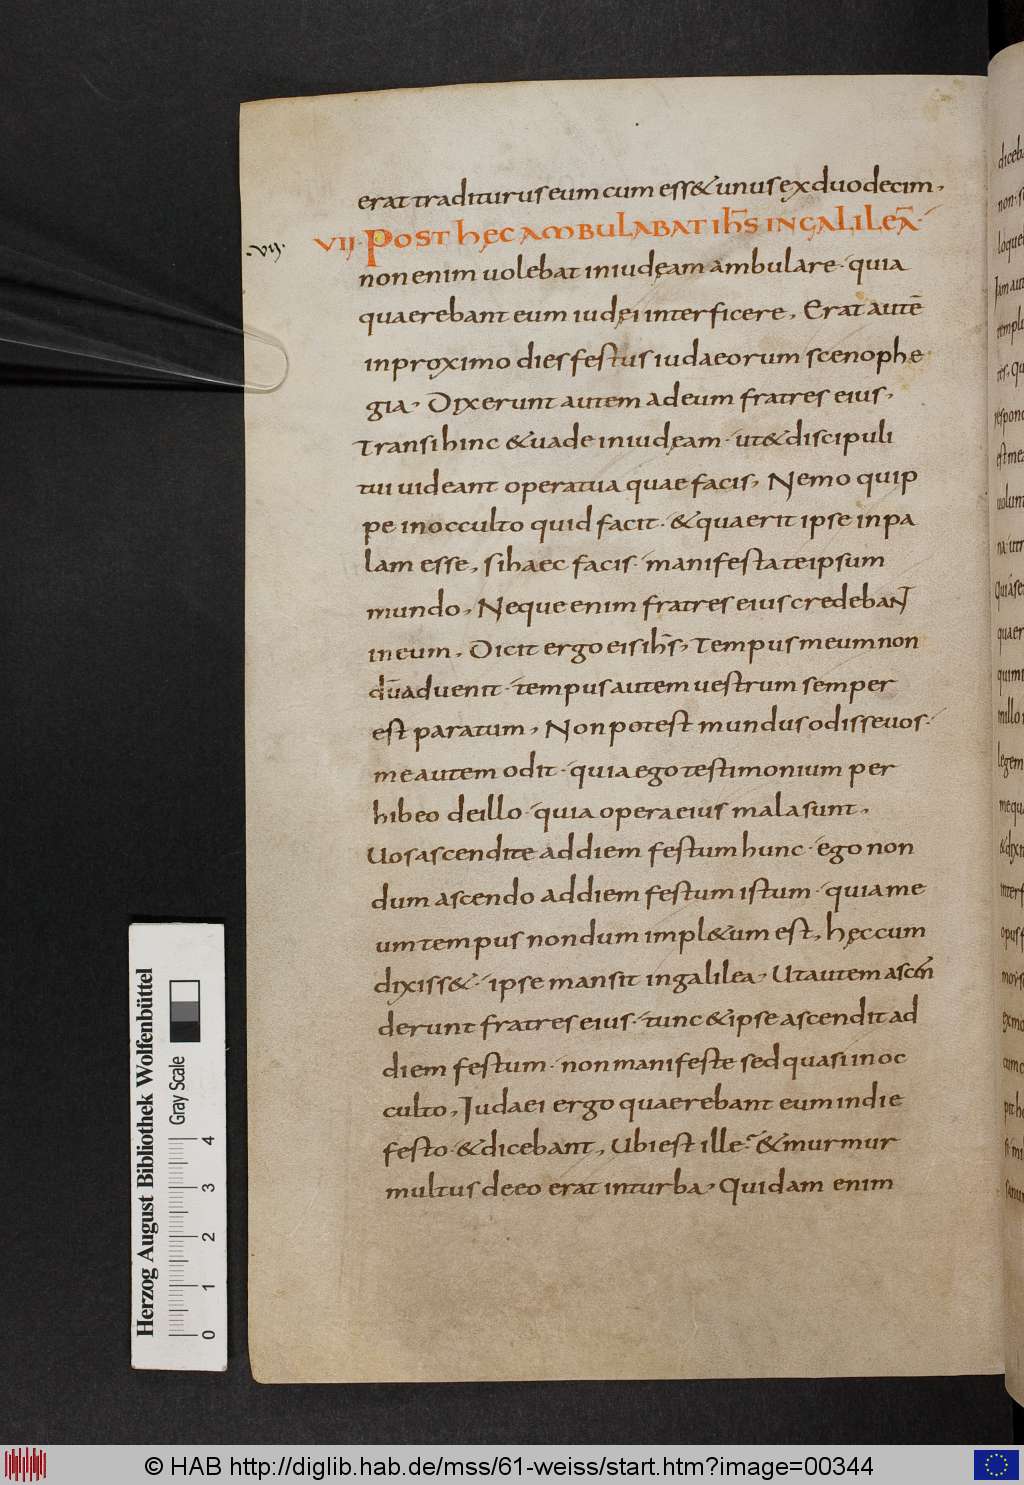 erat traditurus eum cum ess& unus ex duodecim,
.vij. VII· POST hęC AMBULABAT IħS IN GALILEĀ·
non enim uolebat in iudęam ambulare· quia
quaerebant eum iudęi interficere, Erat autē
in proximo dies festus iudaeorum scenophe
gia, Dixerunt autem ad eum fratres eius,
Transi hinc & uade in iudęam· ut & discipuli
tui uideant opera tua quae facis, Nemo quip
pe in occulto quid facit· & quaerit ipse in pa
lam esse, si haec facis· manifesta te ipsum
mundo, Neque enim fratres eius credebaNT
in eum, Dicit ergo eis iħs, Tempus meum non
dū aduenit· tempus autem uestrum semper
est paratum, Non potest mundus odisse uos·
me autem odit· quia ego testimonium per
hibeo de illo· quia opera eius mala sunt,
Uos ascendite ad diem festum hunc· ego non
dum ascendo ad diem festum istum· quia me
um tempus nondum impl&um est, hęc cum
dixiss&· ipse mansit in galilea, Ut autem ascen
derunt fratres eius· tunc & ipse ascendit ad
diem festum· non manifeste sed quasi in oc
culto, Iudaei ergo quaerebant eum in die
festo· & dicebant, Ubi est ille? & murmur
multus de eo erat in turba, Quidam enim
Herzog August Bibliothek Wolfenbüttel
Gray Scale
0 1 2 3 4
© HAB http://diglib.hab.de/mss/61-weiss/start.htm?image=00344